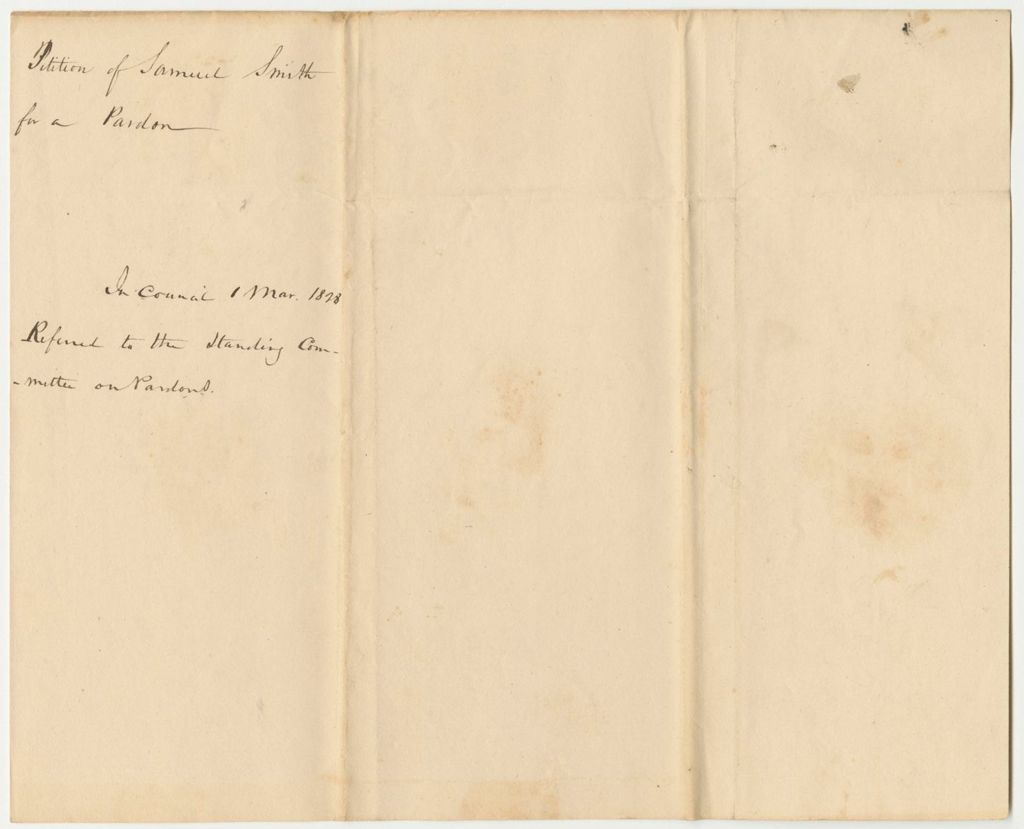 Petition of Samuel Smith
for a Pardon
In Council 1 Mar. 1828
Referred to the Standing Com-
-mittee on Pardons.